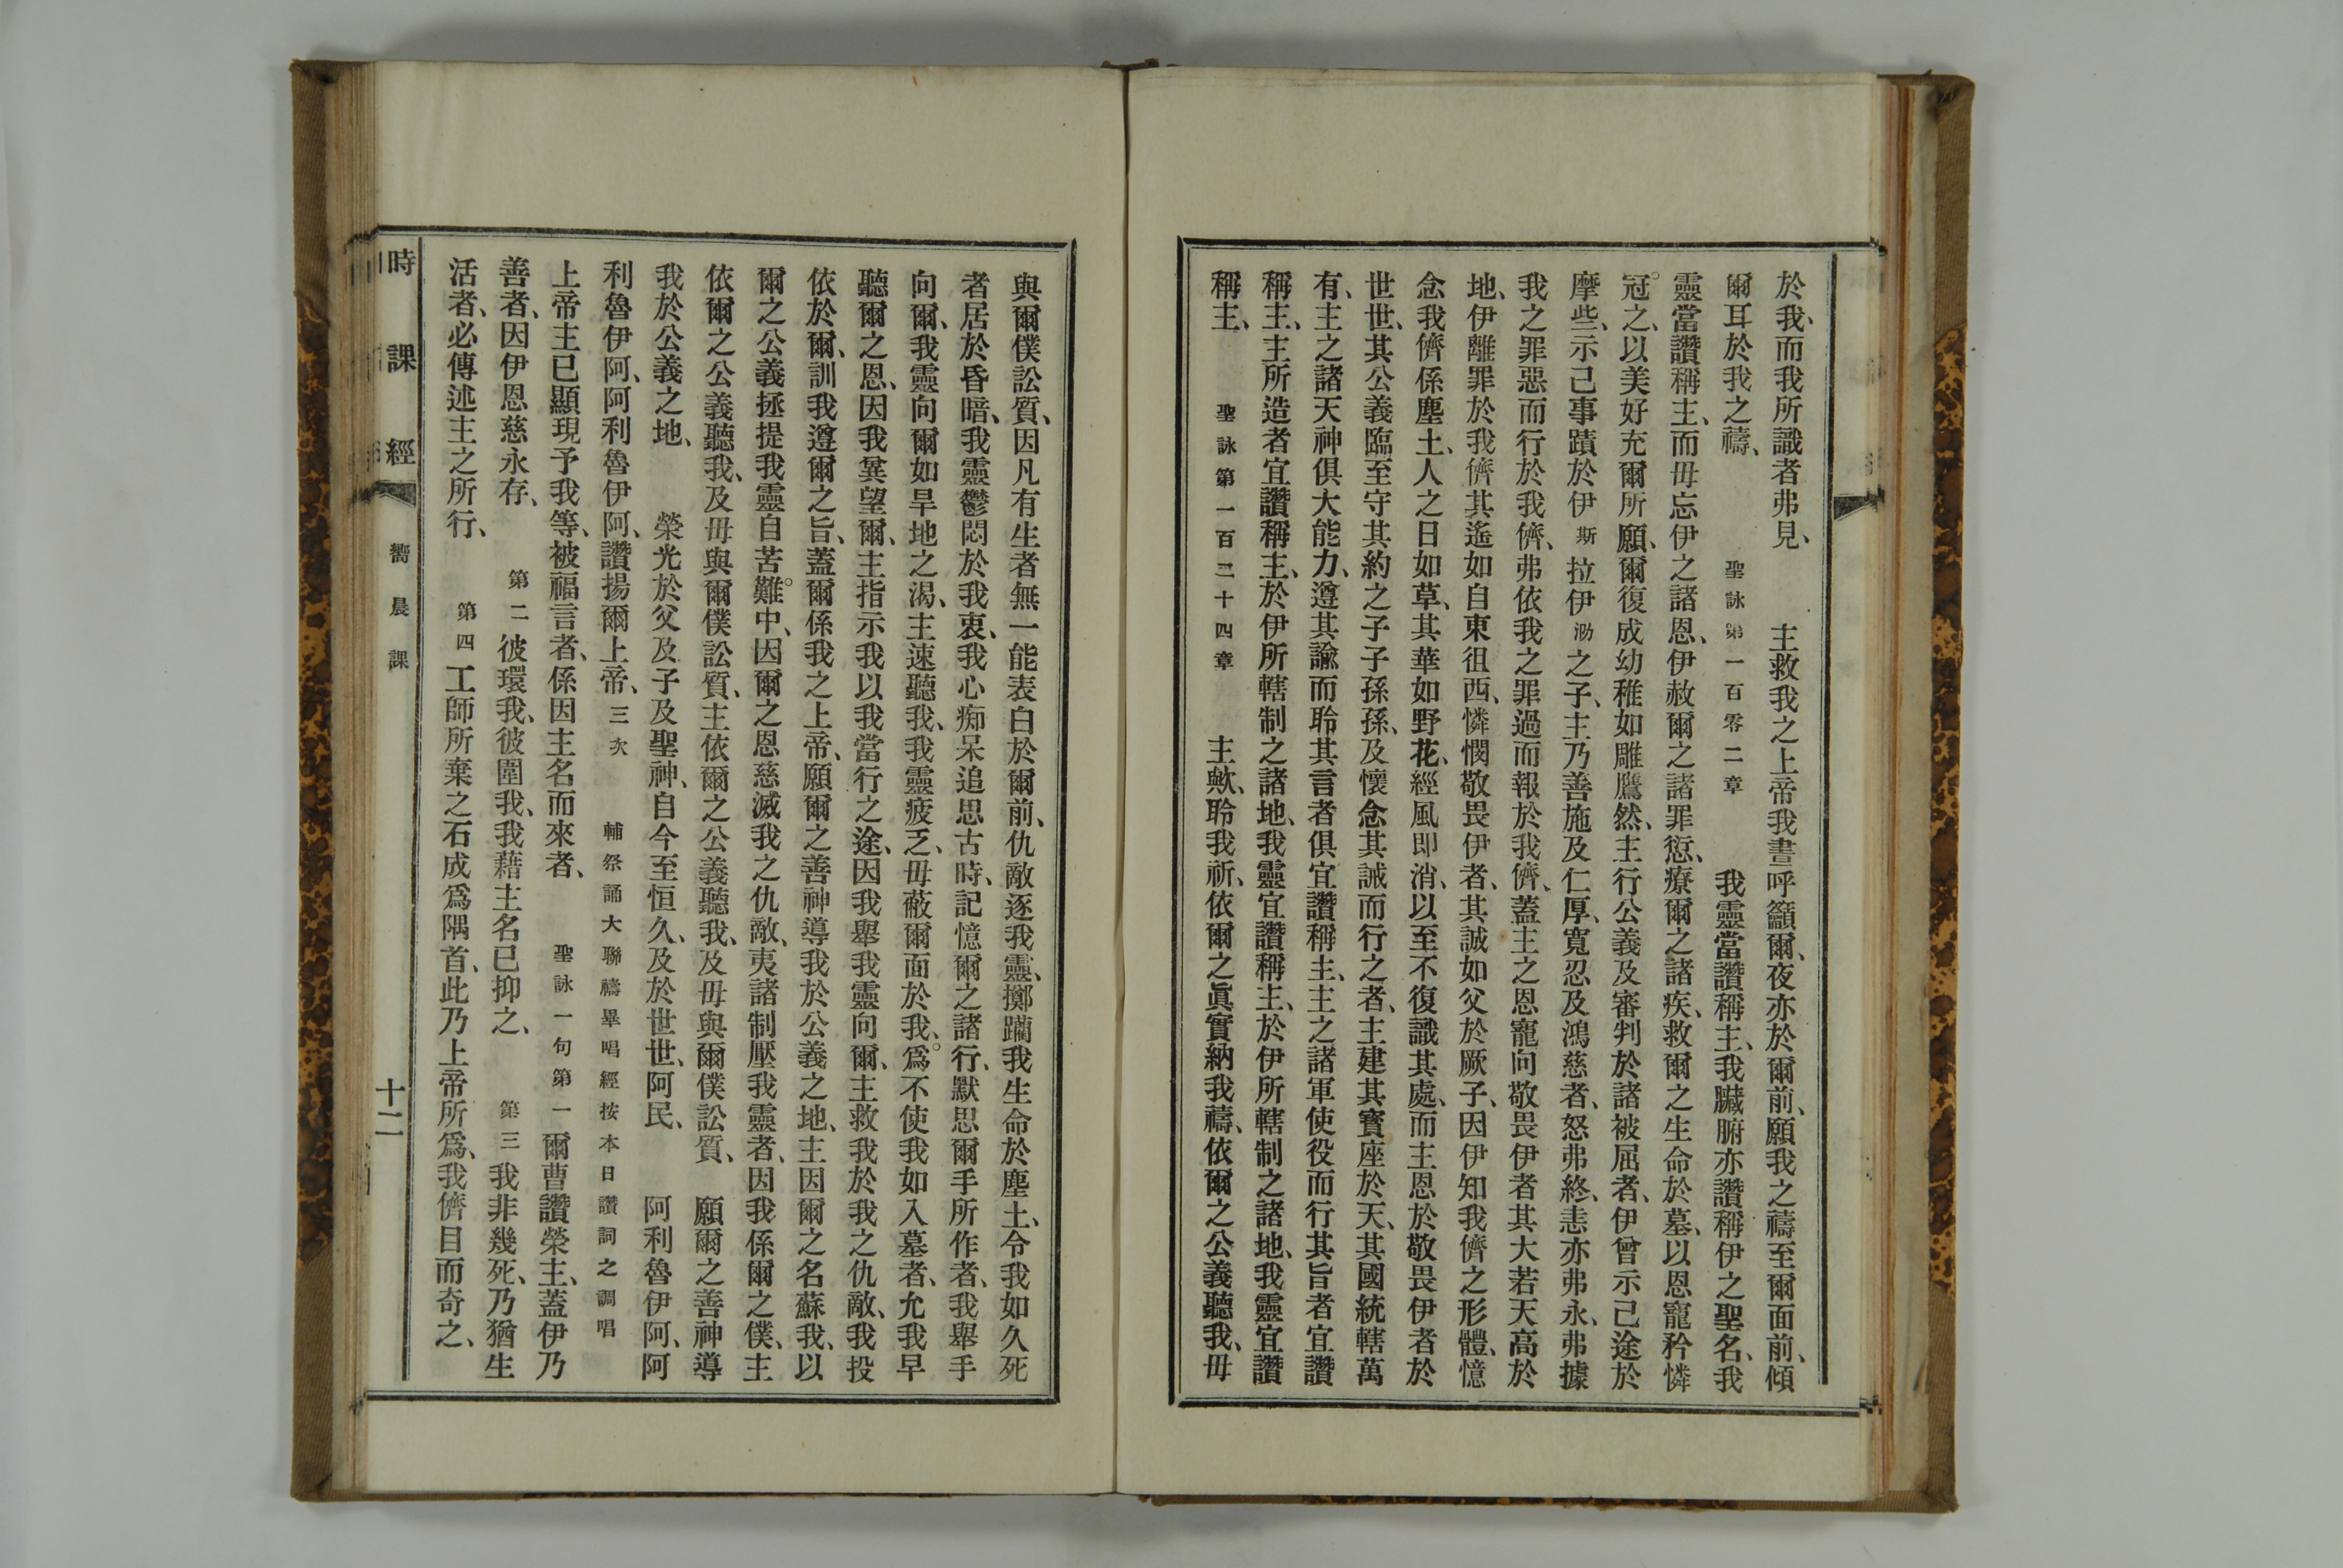 於我、而我所識者弗見、　主救我之上帝我晝呼籲爾、夜亦於爾前、願我之禱至爾面前、傾
爾耳於我之禱、　聖詠第一百零二章　我靈當讚稱主、我臟腑亦讚稱伊之聖名、我
靈當讚稱主、而毋忘伊之諸恩、伊赦爾之諸罪愆、療爾之諸疾、救爾之生命於墓、以恩寵矜憐
冠之、以美好充爾所願、爾復成幼稚如雕鷹然、主行公義及審判於諸被屈者、伊曾示己途於
摩些、示己事蹟於伊斯拉伊泐之子、主乃善施及仁厚、寬忍及鴻慈者、怒弗終、恚亦弗永、弗據
我之罪惡而行於我儕、弗依我之罪過而報於我儕、蓋主之恩寵向敬畏伊者其大若天高於
地、伊離罪於我儕其遙如自東徂西、憐憫敬畏伊者、其誠如父於厥子、因伊知我儕之形體、憶
念我儕係塵土、人之日如草、其華如野花、經風即消、以至不復識其處、而主恩於敬畏伊者於
世世、其公義臨至守其約之子子孫孫、及懷念其誡而行之者、主建其寶座於天、其國統轄萬
有、主之諸天神俱大能力、遵其諭而聆其言者俱宜讚稱主、主之諸軍使役而行其旨者宜讚
稱主、主所造者宜讚稱主、於伊所轄制之諸地、我靈宜讚稱主、於伊所轄制之諸地、我靈宜讚
稱主、　聖詠第一百二十四章　主歟、聆我祈、依爾之眞實納我禱、依爾之公義聽我、毋
與爾僕訟質、因凡有生者無一能表白於爾前、仇敵逐我靈、擲躪我生命於塵土、令我如久死
者居於昏暗、我靈鬱悶於我衷、我心痴呆追思古時、記憶爾之諸行、默思爾手所作者、我舉手
向爾、我靈向爾如旱地之渴、主速聽我、我靈疲乏、毋蔽爾面於我、爲不使我如入墓者、允我早
聽爾之恩、因我兾望爾、主指示我以我當行之途、因我舉我靈向爾、主救我於我之仇敵、我投
依於爾、訓我遵爾之旨、蓋爾係我之上帝、願爾之善神導我於公義之地、主因爾之名蘇我、以
爾之公義拯提我靈自苦難中、因爾之恩慈滅我之仇敵、夷諸制壓我靈者、因我係爾之僕、主
依爾之公義聽我、及毋與爾僕訟質、主依爾之公義聽我、及毋與爾僕訟質、　願爾之善神導
我於公義之地、　榮光於父及子及聖神、自今至恒久、及於世世、阿民、　阿利魯伊阿、阿
利魯伊阿、阿利魯伊阿、讚揚爾上帝、三次　輔祭誦大聯禱畢唱經按本日讚詞之調唱
上帝主已顯現予我等、被福言者、係因主名而來者、　聖詠一句第一　爾曹讚榮主、蓋伊乃
善者、因伊恩慈永存、　第二　彼環我、彼圍我、我藉主名已抑之、　第三　我非幾死、乃猶生
活者、必傳述主之所行、　第四　工師所棄之石成爲隅首、此乃上帝所爲、我儕目而奇之、
時課經　嚮晨課　十二